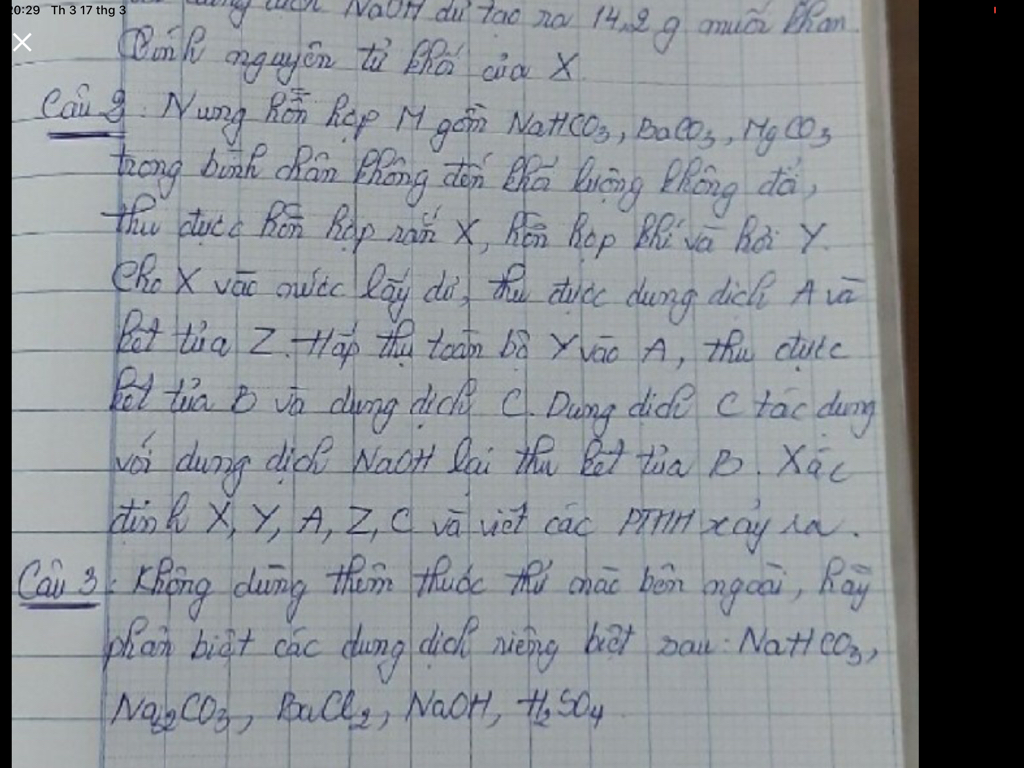 20:29 Th 3 17 thg 3
NaOH dư tạo ra 14,2 g muối khan.
Tính nguyên tử khối của X
Câu 2: Nung hỗn hợp M gồm NaHCO3, BaCO3, MgCO3
trong bình chân không đến khối lượng không đổi,
thu được hỗn hợp rắn X, hỗn hợp khí và hơi Y.
Cho X vào nước lấy dư, thu được dung dịch A và
kết tủa Z. Hấp thụ toàn bộ Y vào A, thu được
kết tủa B và dung dịch C. Dung dịch C tác dụng
với dung dịch NaOH lại thu kết tủa B. Xác
định X, Y, A, Z, C và viết các PTHH xảy ra.
Câu 3: Không dùng thêm thuốc thử nào bên ngoài, hãy
phân biệt các dung dịch riêng biệt sau: NaHCO3,
Na2CO3, BaCl2, NaOH, H2SO4